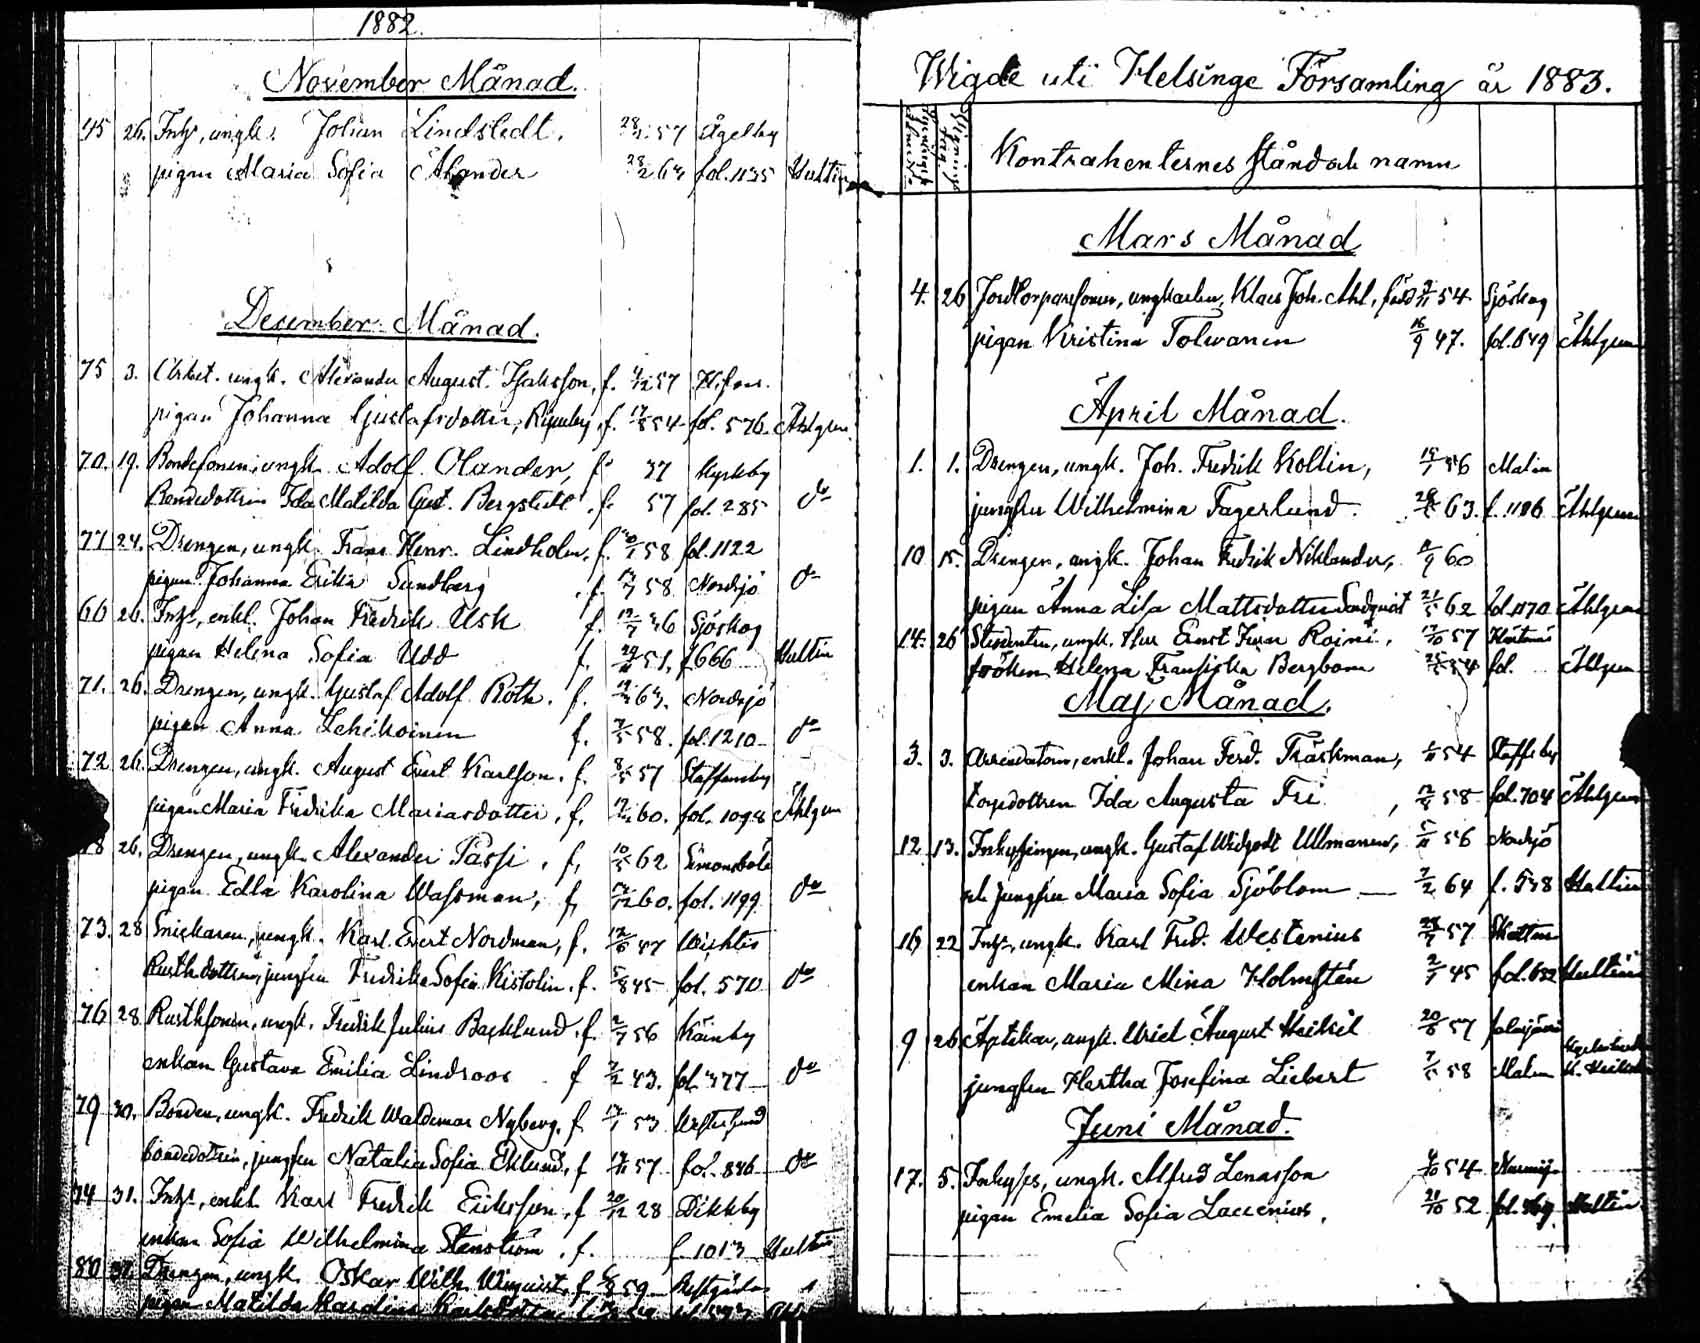 1882.
November Månad.
45 26. Inhs, ungk. Johan Lindstedt. 57 Ågelby
pigan Maria Sofia Ålander 28/2 63 fol. 1135 Hultin
December Månad.
75 3. Arbet. ungk. Alexander August Isaksson, f. 57 H:fors.
pigan Johanna Gustafsdotter, f. 17/8 54 fol. 576. Åhlgren
70. 19. Bondesonen, ungk. Adolf Olander, f. 37 Kyrkby
Bondedottren Ida Matilda Gust. Bergstedt f. 57 fol. 285 do
77 24. Drengen, ungk. Frans Henr. Lindholm, f. 58 fol. 1122
pigan Johanna Erika Sundberg f. 58. Nordsjö do
66 26. Inhs, enkl. Johan Fredrik Usk f. 46 Sjöskog
pigan Helena Sofia Udd f. 51, f 666 Hultin
71. 26. Drengen, ungk. Gustaf Adolf Roth. f. 63. Nordsjö
pigan Anna Lehikoinen f. 58. fol. 1210 do
72 26. Drengen, ungk. August Evert Karlsson. f. 8/5 57 Staffansby
pigan Maria Fredrika Mariasdotter, f. 60. fol. 1098 Åhlgren
78 26. Drengen, ungk. Alexander Passi, f. 10/5 62 Simonsböle
pigan Edla Karolina Wassman, f. 60. fol. 1199 do
73. 28 Snickaren, ungk. Karl Evert Nordman, f. 12/6 47 Wichtis
Rusth.dottren, jungfrun Fredrika Sofia Kistolin. f. 5/8 45 fol. 570 do
76 28 Rusth.sonen, ungk. Fredrik Julius Backlund. f. 2/7 56 Kårnby
enkan Gustava Emilia Lindroos f 7/2 43. fol. 377 do
79 30. Bonden, ungk. Fredrik Waldemar Nyberg. f. 53 Westersund
bondedottren, jungfrun Natalia Sofia Eklund, f 57. fol. 886 do
74 31. Inhs, enkl. Karl Fredrik Eriksson, f 20/12 28 Dikkby
enkan Sofia Wilhelmina Stenström, f. f 1013 Hultin
80 31. Drengen, ungk. Oskar Wilh. Winqvist, f 59
pigan Matilda Karolina
Wigde uti Helsinge Församling år 1883.
Kontrahenternes stånd och namn
Mars Månad
4. 26 Jordtorparesonen, ungkarlen, Klaes Joh. Ahl, född 54 Sjöskog
pigan Kristina Tolvanen 16/9 47. fol. 649 Åhlgren
April Månad.
1. 1. Drengen, ungk. Joh. Fredrik Kollin, 56 Malm
jungfru Wilhelmina Fagerlund. 63. f. 1186 Åhlgren
10 15. Drengen, ungk. Johan Fredrik Niklander, 60
pigan Anna Lisa Mattsdotter Sandqvist 21/5 62 fol. 1170 Åhlgren
14. 26 Studenten, ungk. Herr Ernst Ivar Roini, 17/10 57
fröken Helena Fransiska Bergbom 54 fol. Åhlgren
Maj Månad.
3. 3. Arrendatorn, enkl. Johan Ferd. Träskman, 54 Staffsby
torpdottren Ida Augusta Fri, 58 fol. 704 Åhlgren
12 13. Inhysingen, ungk. Gustaf Ullmanen, 56 Nordsjö
och jungfru Maria Sofia Sjöblom 7/2 64 f. 538 Hultin
16 22 Inhs, ungk. Karl Fred. Westenius 57 Skattm
enkan Maria Mina Holmstén 45 fol. 652 Hultin
9 26 Apotekar, ungk. Uriel August Heikel 20/8 57
jungfru Hertha Josefina Liebert 58 Malm H. Heikel
Juni Månad.
17. 5. Inhyses, ungk. Alfred Lenasson 54
pigan Emelia Sofia Laccenius. 21/10 52 fol. 369 Hultin